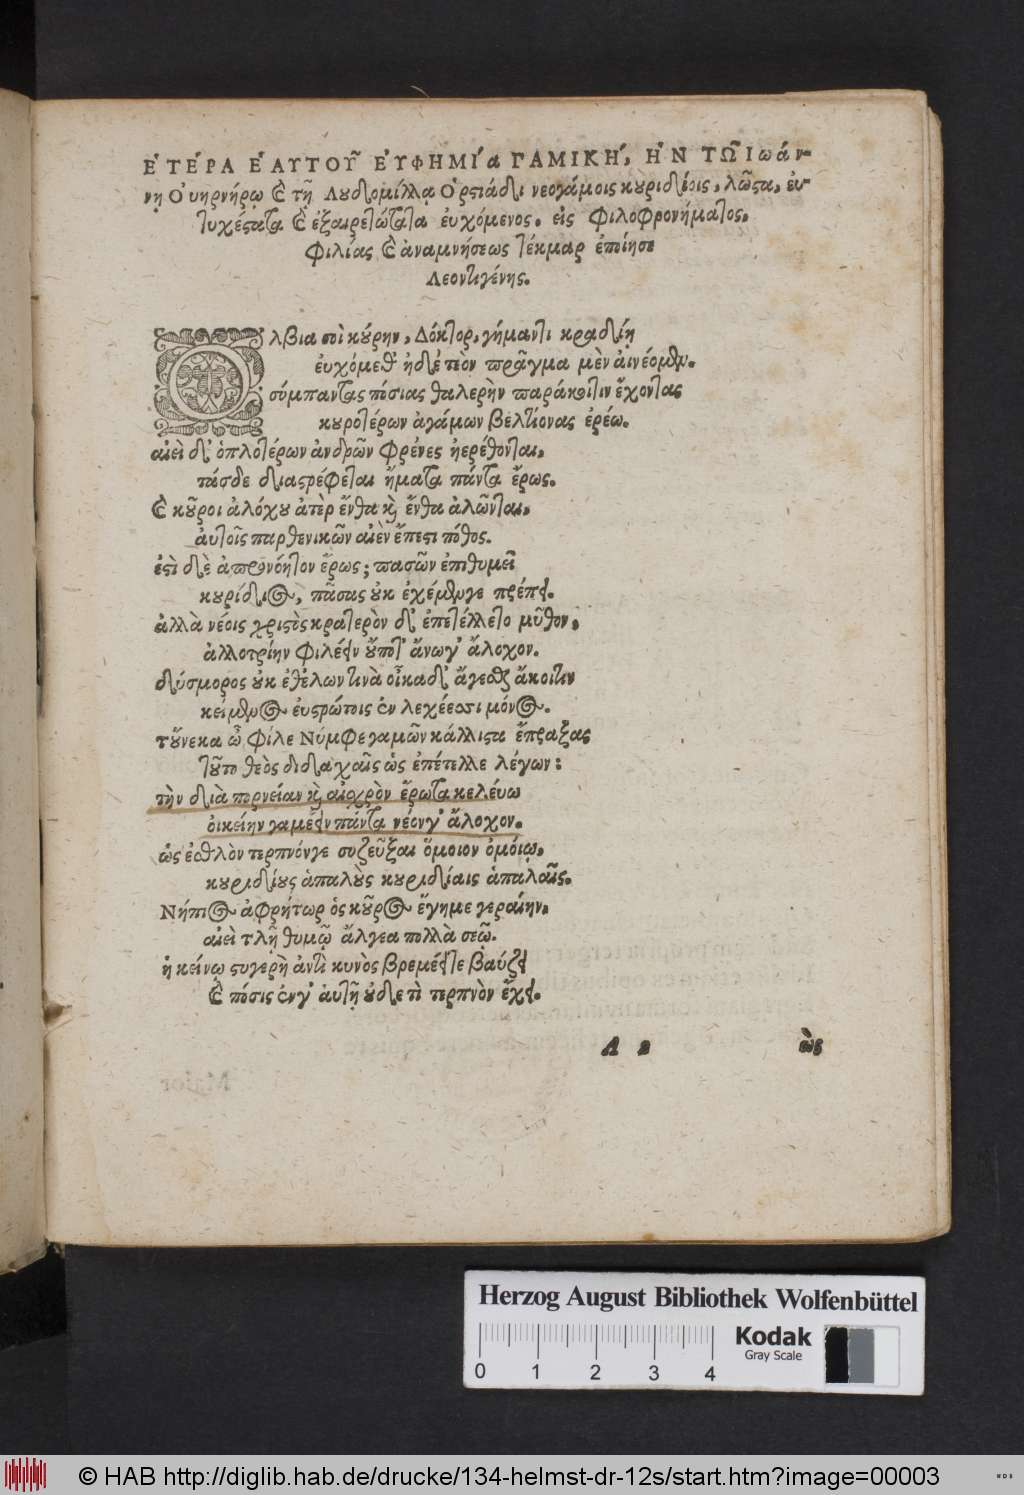 ἙΤΈΡΑ ἙΑΥΤΟΥ͂ ἘΥΦΗΜΊα ΓΑΜΙΚΉ, ἫΝ ΤΩ͂ Ιωάν-
νῃ Ὀυηρνήρῳ καὶ τῇ Λυδομίλλᾳ Ὀρςιάδι νεογάμοις κυριδίοις, λῶςα, ἐυ-
τυχέςατα καὶ ἐξαιρετώτατα ἐυχόμενος. εἰς φιλοφρονήματος.
φιλίας καὶ ἀναμνήσεως τέκμαρ ἐποίησε
Λεοντιγένης.
Ολβια σοὶ κύρην, Δόκτορ, γήμαντι κραδίῃ
ἐυχόμεθ' ἠδέ τεὸν πρᾶγμα μὲν ἀινέομεν.
σύμπαντας πόσιας θαλερὴν παράκοιτιν ἔχοντας
κυροτέρων ἀγάμων βελτίονας ἐρέω.
αἰεὶ δ' ὁπλοτέρων ἀνδρῶν φρένες ἠερέθονται,
τάσδε διαςρέφεται ἤματα πάντα ἔρως.
καὶ κοῦροι ἀλόχου ἀτὲρ ἔνθα καὶ ἔνθα ἀλῶνται,
ἀυτοῖς παρθενικῶν αἰὲν ἔπεςι πόθος.
ἐςὶ δὲ ἀπρονόητον ἔρως; πασῶν ἐπιθυμεῖ
κυρίδιος, πᾶσας οὐκ ἐχέμεν γε πρέπει.
ἀλλὰ νέοις χριςὸς κρατερὸν δ' ἐπετέλλετο μῦθον,
ἀλλοτρίην φιλέειν οὔποτ' ἄνωγ' ἄλοχον.
δύσμορος οὐκ ἐθέλων τινὰ οἶκαδ' ἄγεσθαι ἄκοιτιν
κείμενος ἐυςρώτοις ἐν λεχέεσσι μόνος.
τούνεκα ὦ φίλε Νύμφε γαμῶν κάλλιςα ἔπραξας
τοῦτο θεὸς διδαχαῖς ὡς ἐπέτελλε λέγων:
τὴν διὰ πορνείαν καὶ αἰσχρὸν ἔρωτα κελέυω
ὀικείην γαμέειν πάντα νέον γ' ἄλοχον.
ὡς ἐσθλὸν τερπνόν γε συζεῦξαι ὅμοιον ὁμόιῳ,
κυριδίους ἁπαλοὺς κυριδίαις ἁπαλαῖς.
Νήπιος ἀφρήτωρ ὁς κοῦρος ἔγημε γεραίην,
αἰεὶ τλῇ θυμῷ ἄλγεα πολλὰ σεῷ.
ἡ κείνῳ ςυγερὴ ἀντὶ κυνὸς βρεμέει τε βαύζει
καὶ πόσις ἐν γ' ἀυτῇ οὐδε τὶ τερπνὸν ἔχει.
A 2 ὡς
Herzog August Bibliothek Wolfenbüttel
Kodak
Gray Scale
0 1 2 3 4
© HAB http://diglib.hab.de/drucke/134-helmst-dr-12s/start.htm?image=00003